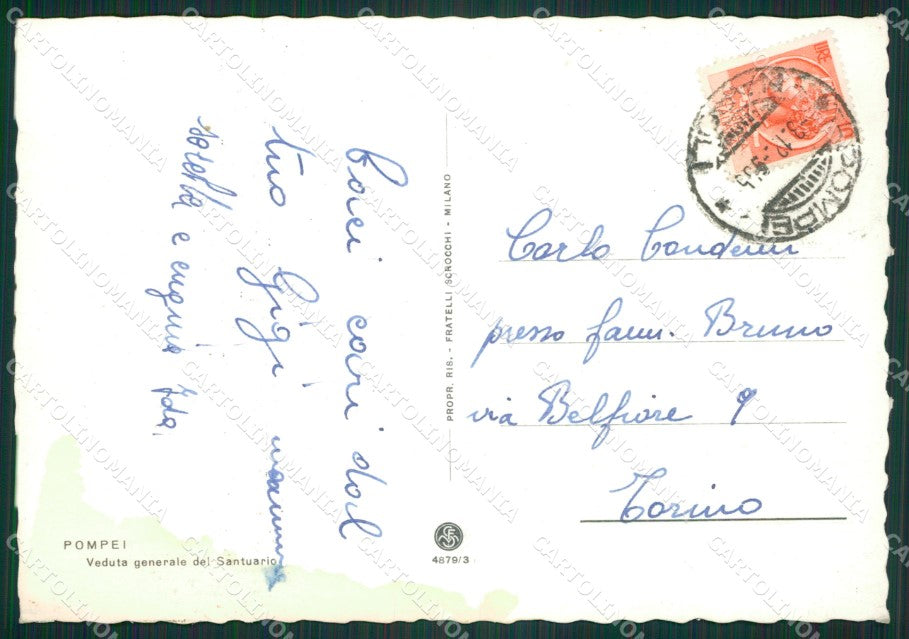 Baci cari dal
tuo Gigi mamma
sorella e cugina Ida
PROPR. RIS. - FRATELLI SCROCCHI - MILANO
Carlo
presso fam. Bruno
via Belfiore 9
Torino
POMPEI
Veduta generale del Santuario
4879/3
LIRE 10
POMPEI
CARTOLINOMANIA